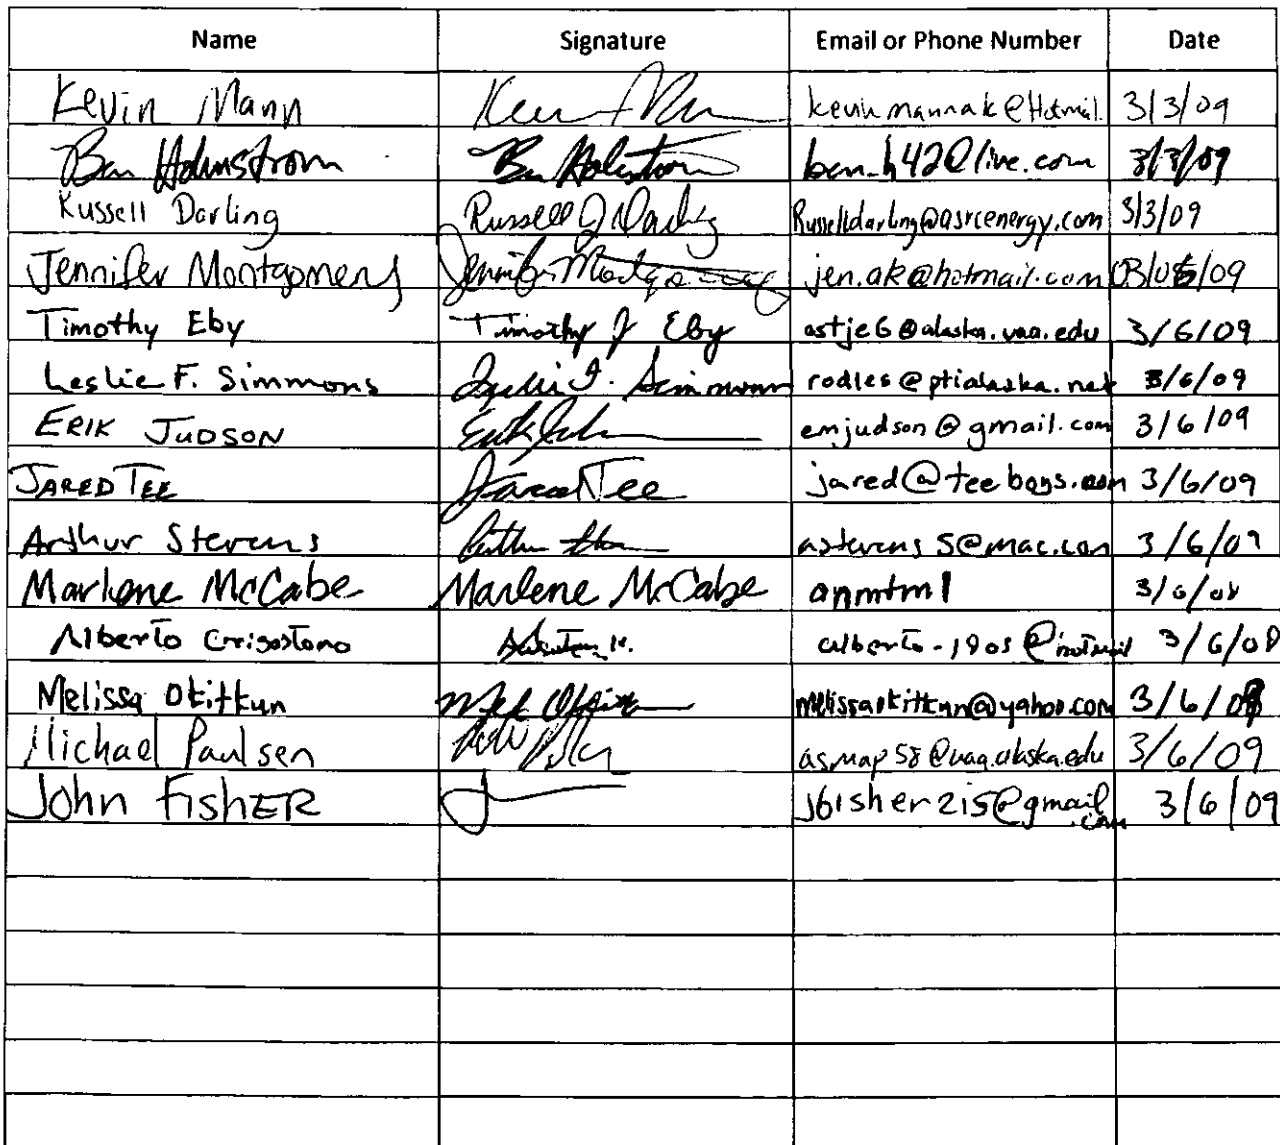 Name Signature Email or Phone Number Date
Kevin Mann Kevin Mann kevinmannak@Hotmail. 3/3/09
Ben Holmstrom Ben Holmstrom ben_h42@live.com 3/3/09
Russell Darling Russell J Darling Russelldarling@asrcenergy.com 3/3/09
Jennifer Montgomery Jennifer Montgomery jen.ak@hotmail.com 03/05/09
Timothy Eby Timothy J Eby astje6@alaska.uaa.edu 3/6/09
Leslie F. Simmons Leslie F. Simmons rodles@ptialaska.net 3/6/09
ERIK JUDSON emjudson@gmail.com 3/6/09
JARED TEE Jared Tee jared@teeboys.com 3/6/09
Arthur Stevens astevens5@mac.com 3/6/09
Marlene McCabe Marlene McCabe anmtm1
Alberto Crisostomo alberto-1905@hotmail 3/6/09
Melissa Okitkun melissaokitkun@yahoo.com 3/6/09
Michael Paulsen asmap58@uaa.alaska.edu 3/6/09
John FisHER jbisher215@gmail.com 3/6/09